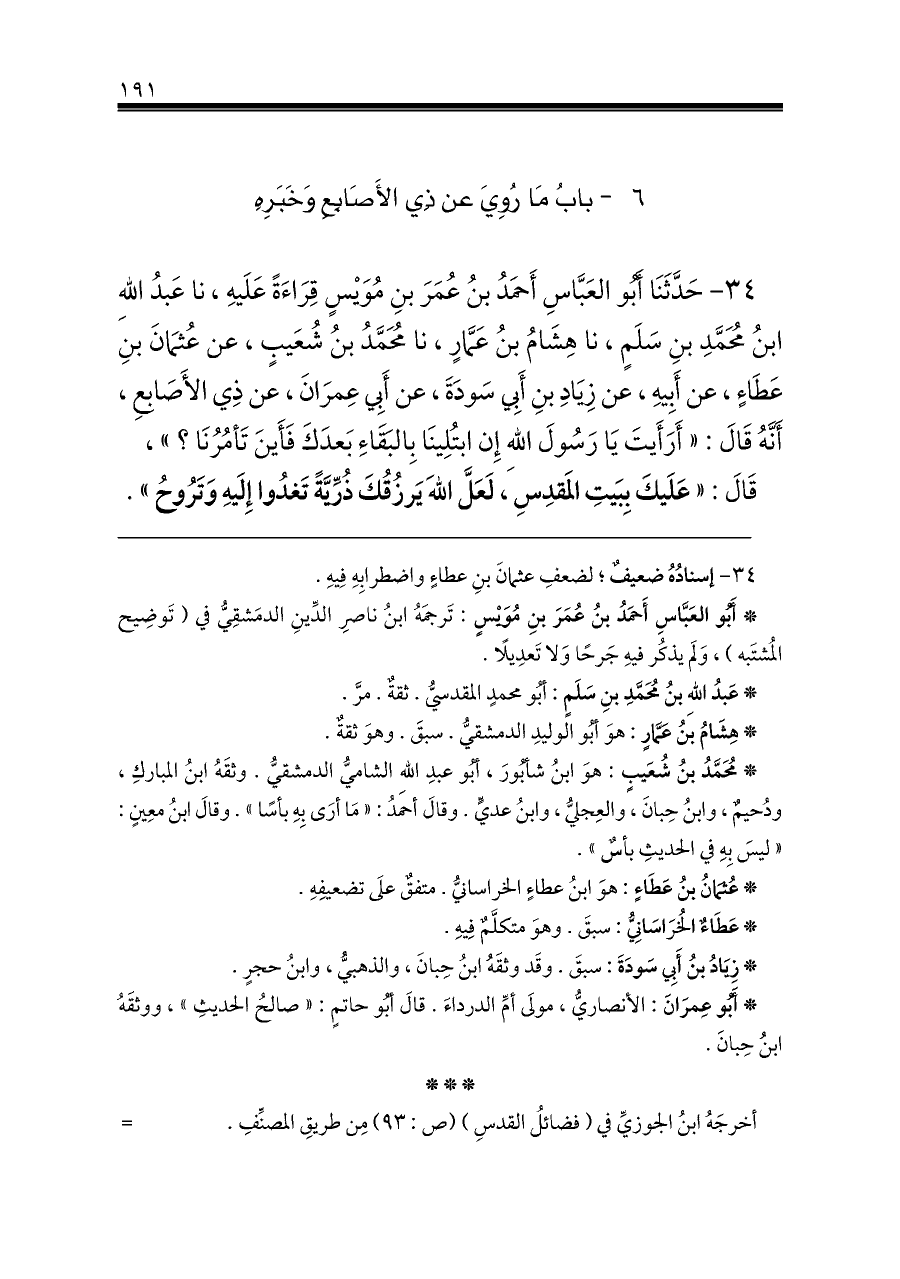 ١٩١
٦ - بابُ مَا رُوِيَ عن ذِي الأَصَابِعِ وَخَبَرِهِ
٣٤- حَدَّثَنَا أَبُو العَبَّاسِ أَحمَدُ بنُ عُمَرَ بنِ مُوَيْسٍ قِرَاءَةً عَلَيهِ ، نا عَبدُ اللهِ
ابنُ مُحَمَّدِ بنِ سَلَمٍ ، نا هِشَامُ بنُ عَمَّارٍ ، نا مُحَمَّدُ بنُ شُعَيبٍ ، عن عُثمَانَ بنِ
عَطَاءٍ ، عن أَبِيهِ ، عن زِيَادِ بنِ أَبِي سَودَةَ ، عن أَبِي عِمرَانَ ، عن ذِي الأَصَابِعِ ،
أَنَّهُ قَالَ : « أَرَأَيتَ يَا رَسُولَ اللهِ إِن ابتُلِينَا بِالبَقَاءِ بَعدَكَ فَأَينَ تَأمُرُنَا ؟ » ،
قَالَ : « عَلَيكَ بِبَيتِ المَقدِسِ ، لَعَلَّ اللهَ يَرزُقُكَ ذُرِّيَّةً تَغدُوا إِلَيهِ وَتَرُوحُ » .
٣٤- إسنادُهُ ضعيفٌ ؛ لضعفِ عثمانَ بنِ عطاءٍ واضطرابِهِ فِيهِ .
* أَبُو العَبَّاسِ أَحمَدُ بنُ عُمَرَ بنِ مُوَيْسٍ : تَرجمَهُ ابنُ ناصرِ الدِّينِ الدمَشقِيُّ في ( تَوضِيح
المُشتَبه ) ، وَلَم يذكُر فيهِ جَرحًا وَلا تَعدِيلًا .
* عَبدُ اللهِ بنُ مُحَمَّدِ بنِ سَلَمٍ : أبُو محمدٍ المقدسيُّ . ثقةٌ . مرَّ .
* هِشَامُ بنُ عَمَّارٍ : هوَ أبُو الوليدِ الدمشقيُّ . سبقَ . وهوَ ثقةٌ .
* مُحَمَّدُ بنُ شُعَيبٍ : هوَ ابنُ شأبُورَ ، أبُو عبدِ الله الشاميُّ الدمشقيُّ . وثقَهُ ابنُ المباركِ ،
ودُحيمٌ ، وابنُ حِبانَ ، والعِجليُّ ، وابنُ عديٍّ . وقالَ أحمَدُ : « مَا أرَى بِهِ بأسًا » . وقالَ ابنُ معِينٍ :
« ليسَ بِهِ في الحديثِ بأسٌ » .
* عُثمَانُ بنُ عَطَاءٍ : هوَ ابنُ عطاءٍ الخراسانيُّ . متفقٌ علَى تضعيفِهِ .
* عَطَاءُ الخُرَاسَانِيُّ : سبقَ . وهوَ متكلَّمٌ فِيهِ .
* زِيَادُ بنُ أَبِي سَودَةَ : سبقَ . وقَد وثقَهُ ابنُ حِبانَ ، والذهبيُّ ، وابنُ حجرٍ .
* أَبُو عِمرَانَ : الأنصاريُّ ، مولَى أمِّ الدرداءَ . قالَ أبُو حاتمٍ : « صالحُ الحديثِ » ، ووثقَهُ
ابنُ حِبانَ .
***
أخرجَهُ ابنُ الجوزيِّ في ( فضائلُ القدسِ ) (ص : ٩٣) مِن طريقِ المصنِّفِ . =